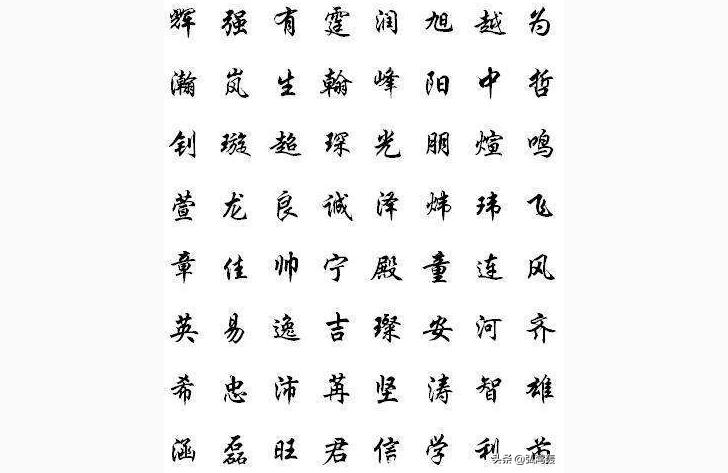 辉 强 有 霆 润 旭 越 为
瀚 岚 生 翰 峰 阳 中 哲
钊 璇 超 琛 光 朋 煊 鸣
萱 龙 良 诚 泽 炜 玮 飞
章 佳 帅 宁 殿 童 连 风
英 易 逸 吉 璨 安 河 齐
希 忠 沛 苒 坚 涛 智 雄
涵 磊 旺 君 信 学 利
头条 @弘鸣